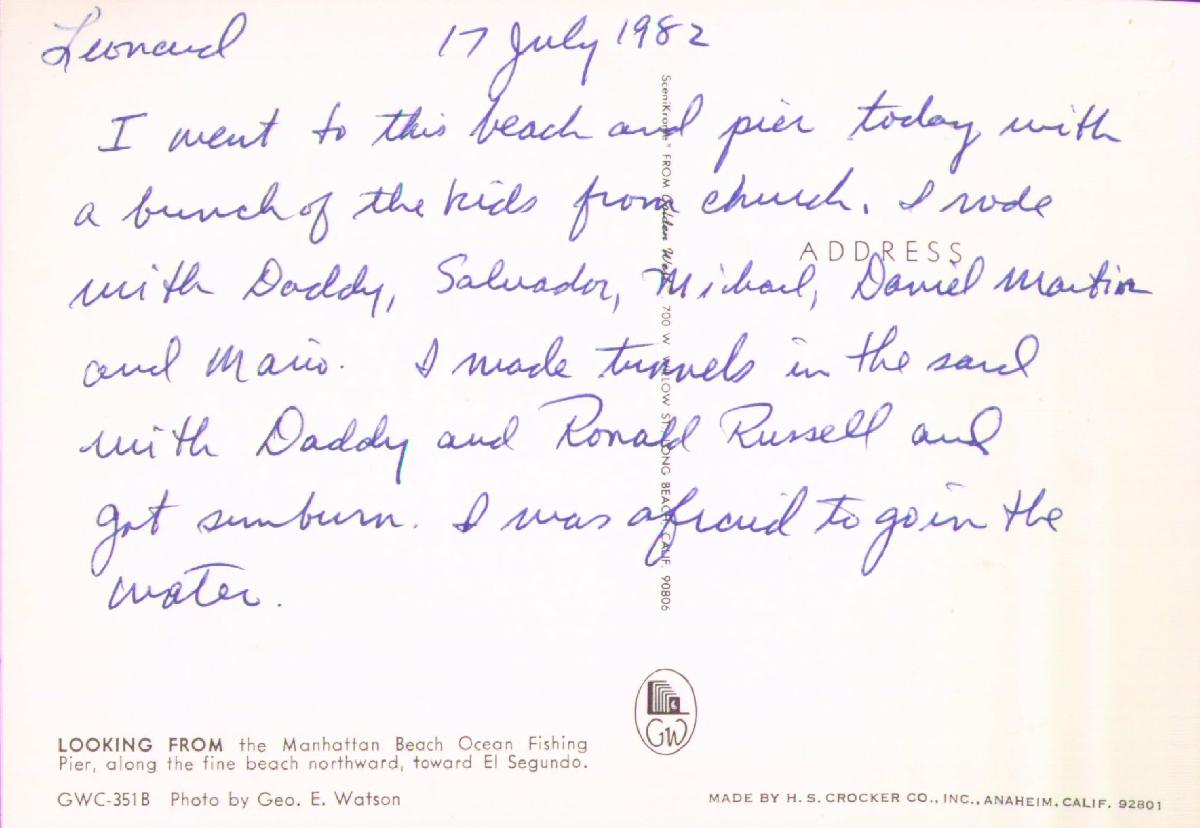 Leonard 17 July 1982
I went to this beach and pier today with
a bunch of the kids from church. I rode
with Daddy, Salvador, Michael, Daniel Martin
and Mario. I made tunnels in the sand
with Daddy and Ronald Russell and
got sunburn. I was afraid to go in the
water.
ADDRESS
SceniKrome" FROM Golden West, 700 W. WILLOW ST., LONG BEACH, CALIF. 90806
GW
LOOKING FROM the Manhattan Beach Ocean Fishing
Pier, along the fine beach northward, toward El Segundo.
GWC-351B Photo by Geo. E. Watson
MADE BY H. S. CROCKER CO., INC., ANAHEIM, CALIF. 92801